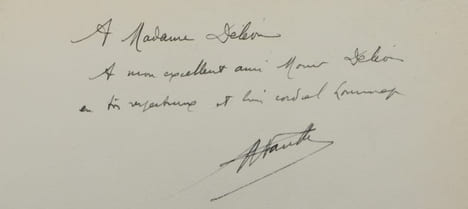 A Madame Deleon
A mon excellent ami Monsr Deleon
en très respectueux et bien cordial hommage